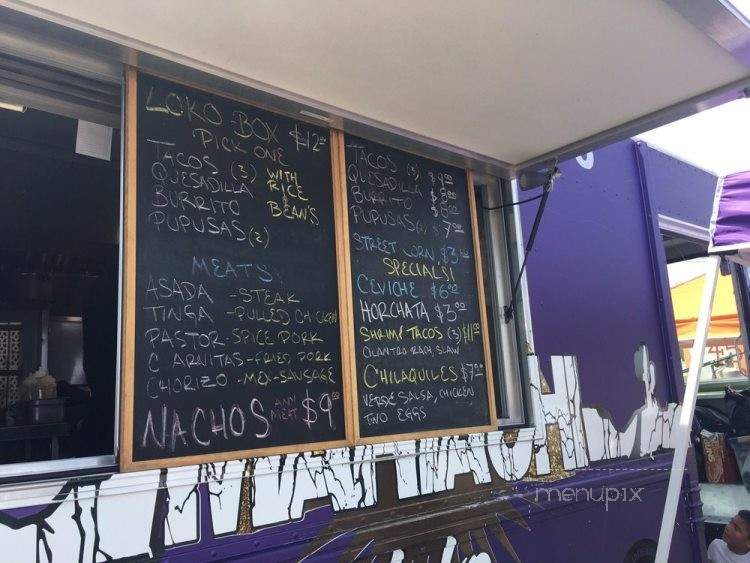 LOKO BOX $12.00
PICK ONE
TACOS (3) WITH
QUESADILLA RICE
BURRITO &
PUPUSAS (2) BEAN'S
MEATS
ASADA - STEAK
TINGA - PULLED CHICKEN
PASTOR - SPICE PORK
CARNITAS - FRIED PORK
CHORIZO - MEX-SAUSAGE
NACHOS ANY MEAT $9.00
TACOS (3)
QUESADILLA
BURRITO
PUPUSAS $7.00
STREET CORN $3.00
SPECIALS!
CEVICHE $6.00
HORCHATA $3.00
SHRIMP TACOS (3) $11.00
CILANTRO RACH, SLAW
CHILAQUILES $7.00
VERDE SALSA, CHICKEN
TWO EGGS
menupix